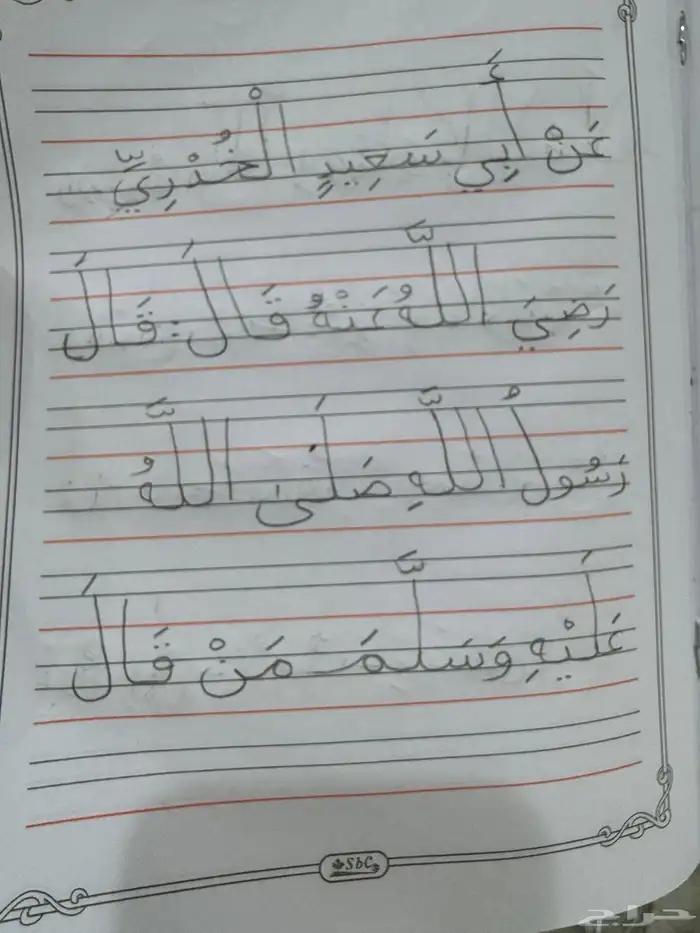 عَنْ أَبِي سَعِيدٍ الْخُدْرِيِّ
رَضِيَ اللَّهُ عَنْهُ قَالَ: قَالَ
رَسُولُ اللَّهِ صَلَىَ اللَّهُ
عَلَيْهِ وَسَلَّمَ مَنْ قَالَ
SbC
حراج